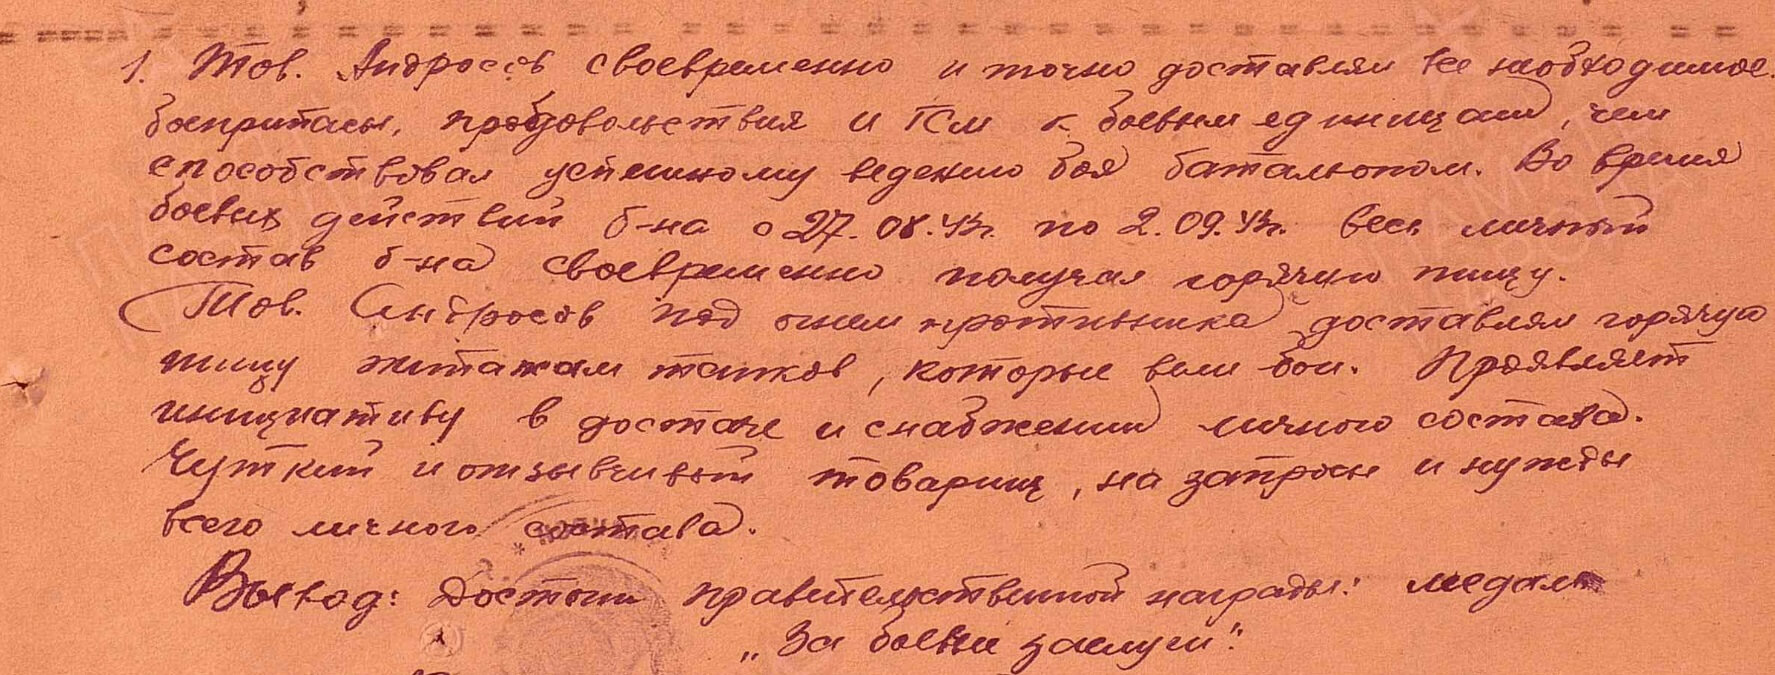 1. Тов. Андросов своевременно и точно доставлял все необходимое.
боеприпасы, продовольствия и ГСМ к боевым единицам, чем
способствовал успешному ведению боя батальоном. Во время
боевых действий б-на с 27.08.43г. по 2.09.43г. весь личный
состав б-на своевременно получал горячую пищу.
Тов. Андросов под огнем противника доставлял горячую
пищу экипажам танков, которые вели бои. Проявляет
инициативу в достаче и снабжении личного состава.
Чуткий и отзывчивый товарищ, на запросы и нужды
всего личного состава.
Вывод: Достоин правительственной награды: медаль
„За боевые заслуги".